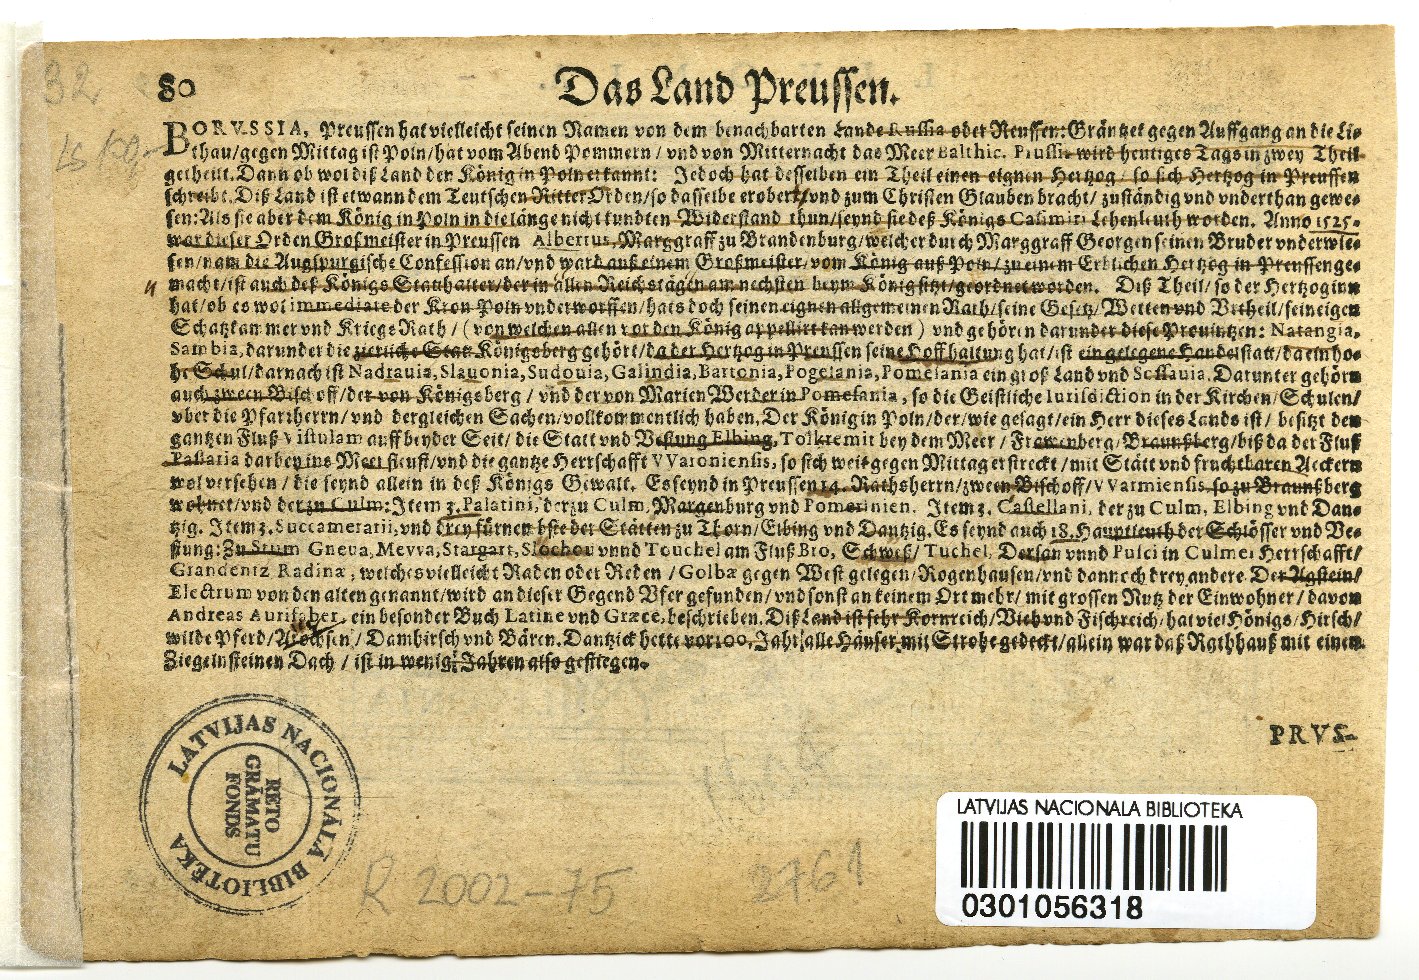 32
80
Das Land Preussen.
Ls 100,-
BORVSSIA, Preussen hat vielleicht seinen Namen von dem benachbarten Lande Russia oder Reussen: Gräntzet gegen Auffgang an die Lit-
thau/gegen Mittag ist Poln/hat vom Abend Pommern/vnd von Mitternacht das Meer Balthic. Prussia wird heutiges Tags in zwey Theil
getheilt. Dann ob wol diß Land den König in Poln erkannt: Jedoch hat desselben ein Theil einen eignen Hertzog/so sich Hertzog in Preussen
schreibt. Diß Land ist etwann dem Teutschen Ritter Orden/so dasselbe erobert/vnd zum Christen Glauben bracht/zuständig vnd vnderthan gewe-
sen: Als sie aber dem König in Poln in die länge nicht kundten Widerstand thun/seynd sie deß Königs Casimiri Lehenleuth worden. Anno 1525.
war dieser Orden Großmeister in Preussen Albertus, Marggraff zu Brandenburg/welcher durch Marggraff Georgen seinen Bruder vnderwie-
sen/nam die Augspurgische Confession an/vnd ward auß einem Großmeister/vom König auß Poln/zu einem Erblichen Hertzog in Preussen ge-
macht/ist auch deß Königs Statthalter/der in allen Reichstägen am nechsten beym König sitzt/geordnet worden. Diß Theil/so der Hertzog inn
hat/ob es wol immediate der Kron Poln vnderworffen/hats doch seinen eignen allgemeinen Rath/seine Gesetz/Wetten vnd Vrtheil/sein eigen
Schatzkammer vnd Kriegs Rath/(von welchen allen vor den König appellirt kan werden) vnd gehören darunder diese Prouintzen: Natangia,
Sambia, darunder die zierliche Statt Königsberg gehört/da der Hertzog in Preussen seine Hoffhaltung hat/ist ein gelegene Handelstatt/da ein ho-
he Schul/darnach ist Nadrauia, Slauonia, Sudouia, Galindia, Bartonia, Pogesania, Pomesania ein groß Land vnd Sossauia. Darunter gehörn
auch zween Bischoff/der von Königsberg/vnd der von Marien Werder in Pomesania, so die Geistliche Iurisdiction in der Kirchen/Schulen/
vber die Pfarrherrn/vnd dergleichen Sachen/vollkommentlich haben. Der König in Poln/der/wie gesagt/ein Herr dieses Lands ist/besitzt den
gantzen Fluß Vistulam auff beyder Seit/die Statt vnd Vestung Elbing, Tolkremit bey dem Meer/Frawenberg/Braunßberg/biß da der Fluß
Passaria darbey ins Meer fleust/vnd die gantze Herrschafft VVaroniensis, so sich weit gegen Mittag erstreckt/mit Stätt vnd fruchtbaren Aeckern
wol versehen/die seynd allein in deß Königs Gewalt. Es seynd in Preussen 14. Rathsherrn/zween Bischoff/VVarmiensis so zu Braunßberg
wohnet/vnd der zu Culm: Item 3. Palatini, der zu Culm, Margenburg vnd Pomerinien. Item 3. Castellani, der zu Culm, Elbing vnd Dan-
tzig. Item 3. Succamerarii, vnd drey fürnembste der Stätten zu Thorn/Elbing vnd Dantzig. Es seynd auch 18. Hauptleuth der Schlösser vnd Ve-
stung: Zu Stum Gneua, Mevva, Stargart, Slochou vnnd Touchel am Fluß Bro, Schweß/Tuchel, Dersau vnnd Pulci in Culmer Herrschafft/
Grandentz Radinæ, welches vielleicht Raden oder Reden/Golbæ gegen West gelegen/Rogenhausen/vnd dannoch drey andere. Der Agstein/
Electrum von den alten genannt/wird an dieser Gegend Vfer gefunden/vnd sonst an keinem Ort mehr/mit grossen Nutz der Einwohner/davon
Andreas Aurifaber, ein besonder Buch Latine vnd Græce, beschrieben. Diß Land ist sehr Kornreich/Vieh vnd Fischreich/hat viel Hönigs/Hirsch/
wilde Pferd/Vrochsen/Damhirsch vnd Bären. Dantzick hette vor 100. Jahr/alle Häuser mit Strohe gedeckt/allein war daß Rathhauß mit einem
Ziegelnsteinen Dach/ist in wenig Jahren also gestiegen.
PRVS-
LATVIJAS NACIONĀLĀ BIBLIOTĒKA
RETO
GRĀMATU
FONDS
R 2002-75
2761
LATVIJAS NACIONALA BIBLIOTEKA
0301056318